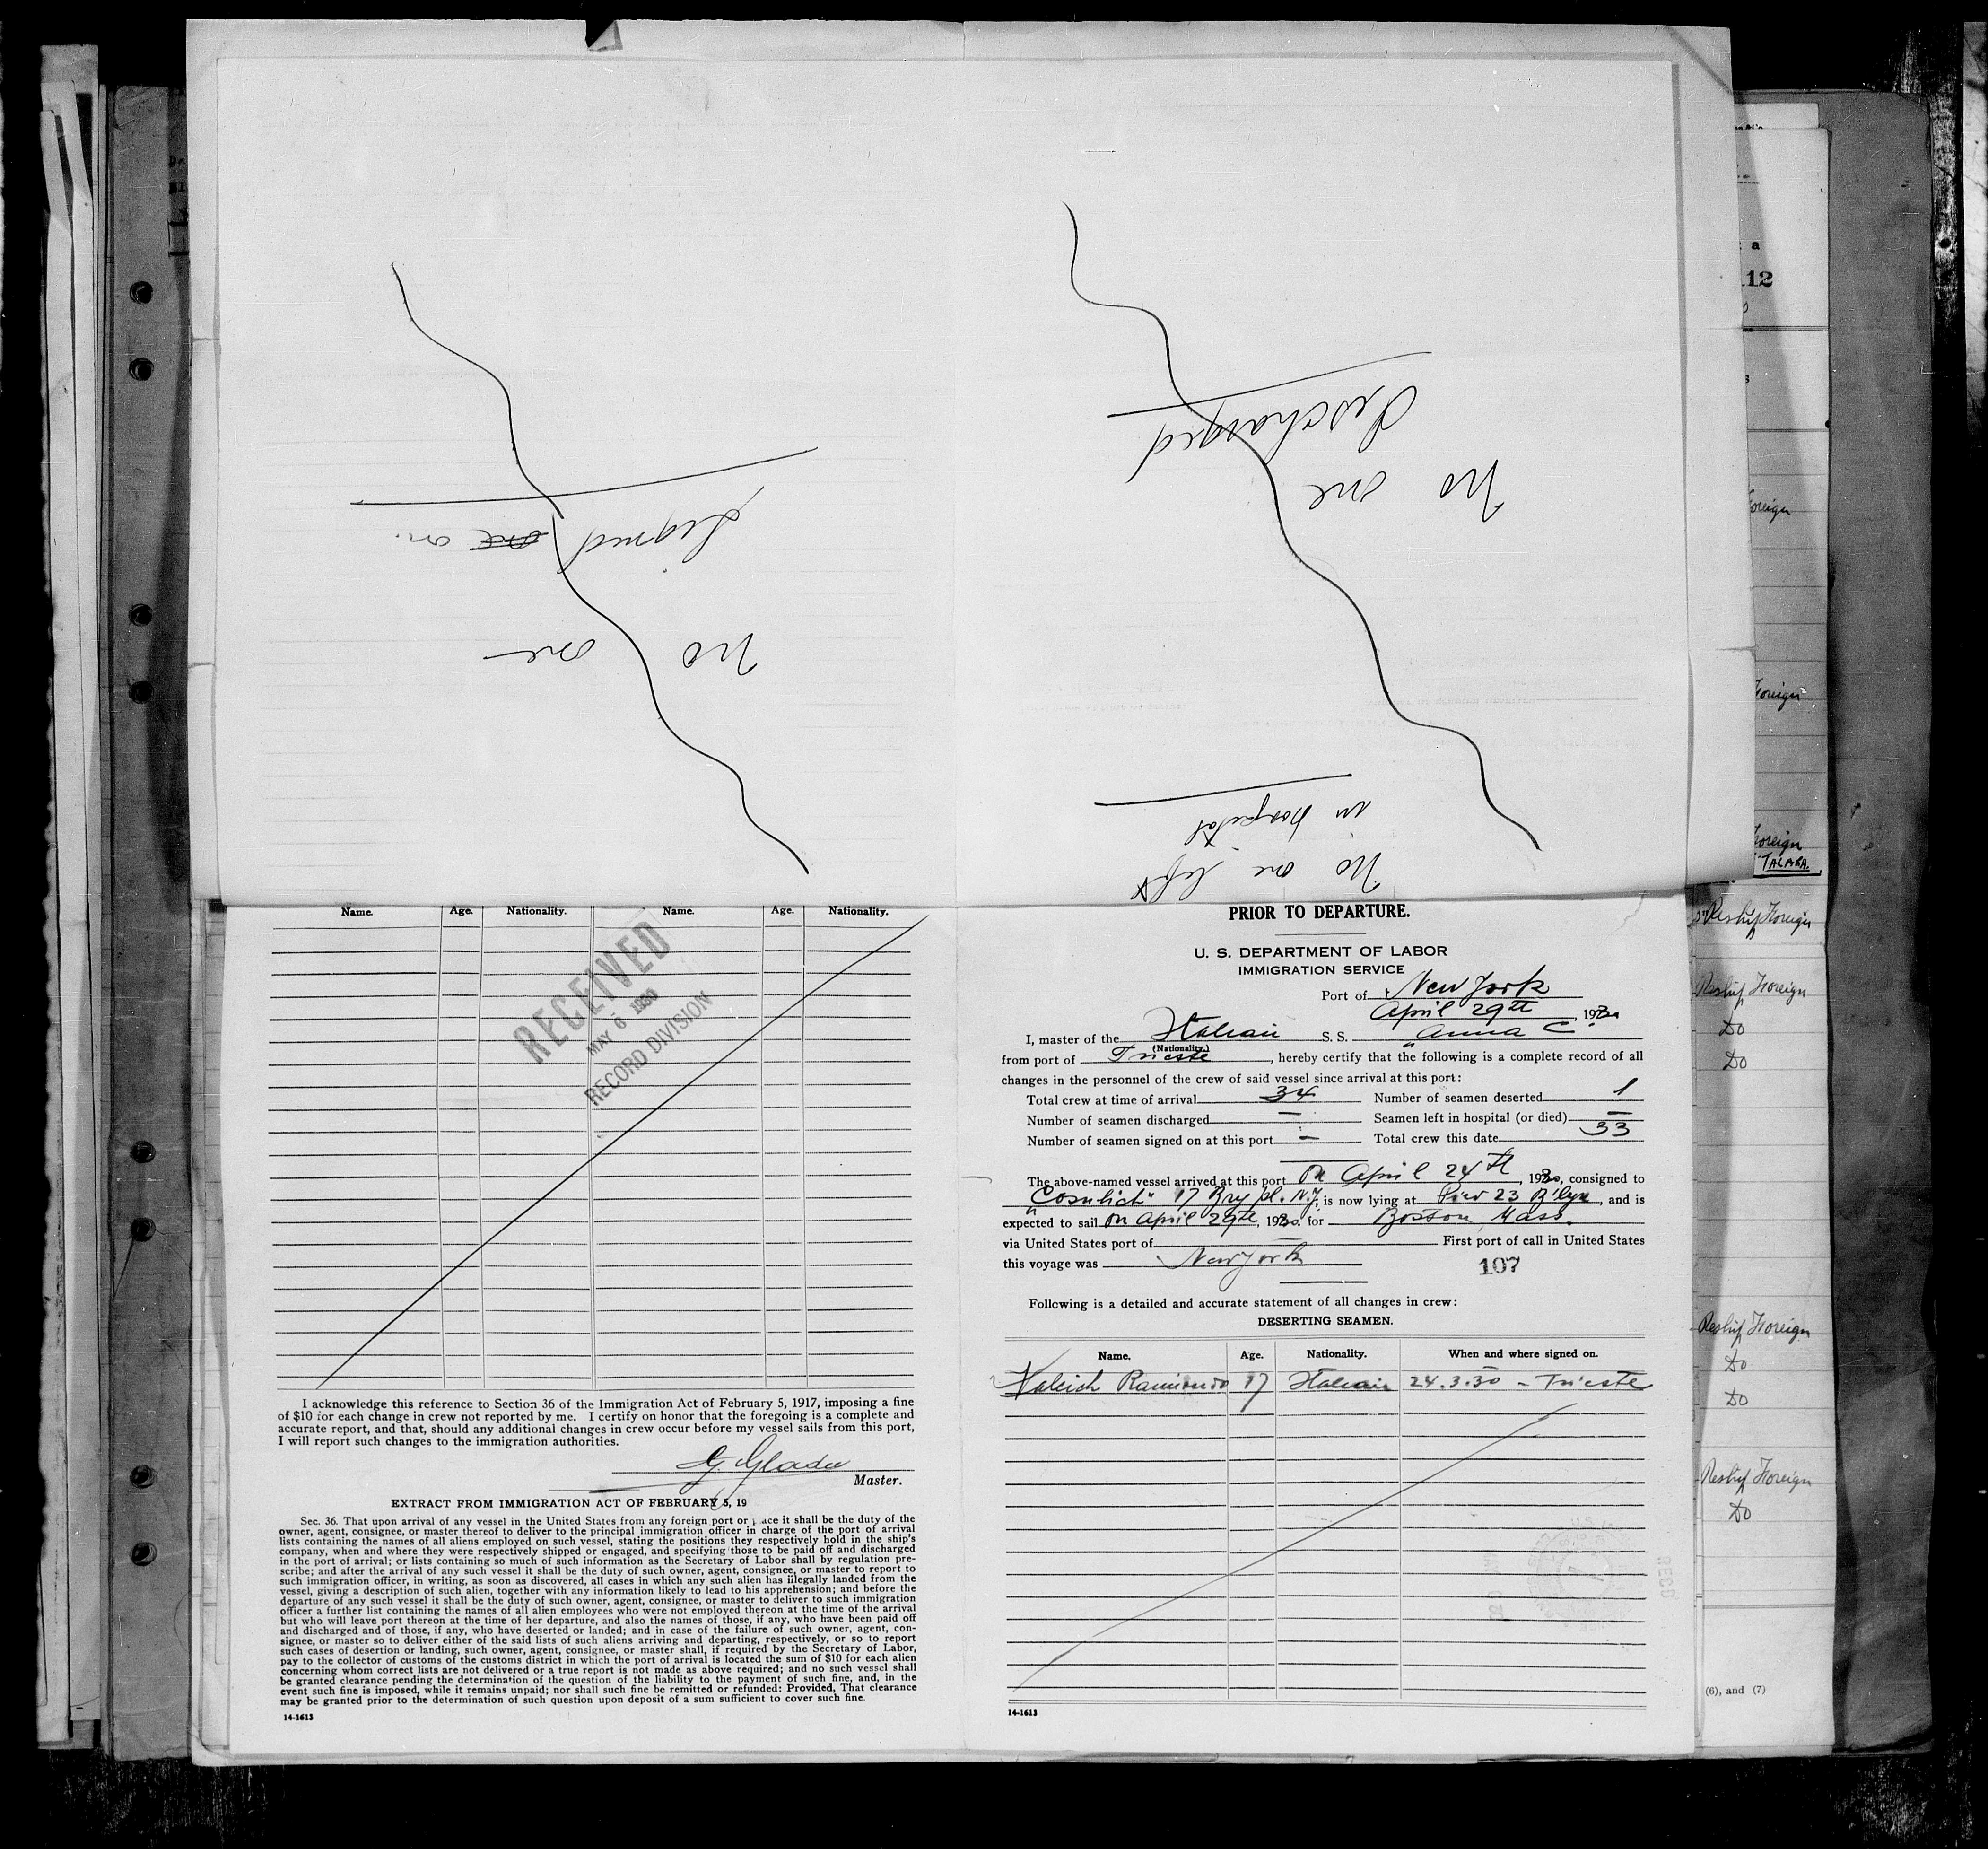 No one
discharged
No one
signed on.
No one left
in hospital
Name. Age. Nationality. Name. Age. Nationality.
RECEIVED
MAY 6 1930
RECORD DIVISION
I acknowledge this reference to Section 36 of the Immigration Act of February 5, 1917, imposing a fine
of $10 for each change in crew not reported by me. I certify on honor that the foregoing is a complete and
accurate report, and that, should any additional changes in crew occur before my vessel sails from this port,
I will report such changes to the immigration authorities.
Master.
EXTRACT FROM IMMIGRATION ACT OF FEBRUARY 5, 19
Sec. 36. That upon arrival of any vessel in the United States from any foreign port or place it shall be the duty of the
owner, agent, consignee, or master thereof to deliver to the principal immigration officer in charge of the port of arrival
lists containing the names of all aliens employed on such vessel, stating the positions they respectively hold in the ship's
company, when and where they were respectively shipped or engaged, and specifying those to be paid off and discharged
in the port of arrival; or lists containing so much of such information as the Secretary of Labor shall by regulation pre-
scribe; and after the arrival of any such vessel it shall be the duty of such owner, agent, consignee, or master to report to
such immigration officer, in writing, as soon as discovered, all cases in which any such alien has illegally landed from the
vessel, giving a description of such alien, together with any information likely to lead to his apprehension; and before the
departure of any such vessel it shall be the duty of such owner, agent, consignee, or master to deliver to such immigration
officer a further list containing the names of all alien employees who were not employed thereon at the time of the arrival
but who will leave port thereon at the time of her departure, and also the names of those, if any, who have been paid off
and discharged and of those, if any, who have deserted or landed; and in case of the failure of such owner, agent, con-
signee, or master so to deliver either of the said lists of such aliens arriving and departing, respectively, or so to report
such cases of desertion or landing, such owner, agent, consignee, or master shall, if required by the Secretary of Labor,
pay to the collector of customs of the customs district in which the port of arrival is located the sum of $10 for each alien
concerning whom correct lists are not delivered or a true report is not made as above required; and no such vessel shall
be granted clearance pending the determination of the question of the liability to the payment of such fine, and, in the
event such fine is imposed, while it remains unpaid; nor shall such fine be remitted or refunded: Provided, That clearance
may be granted prior to the determination of such question upon deposit of a sum sufficient to cover such fine.
14-1613
PRIOR TO DEPARTURE.
U. S. DEPARTMENT OF LABOR
IMMIGRATION SERVICE
Port of New York
April 29th, 1930
I, master of the Italian S. S. "Anna C."
(Nationality.)
from port of Trieste, hereby certify that the following is a complete record of all
changes in the personnel of the crew of said vessel since arrival at this port:
Total crew at time of arrival 34 Number of seamen deserted 1
Number of seamen discharged — Seamen left in hospital (or died) —
Number of seamen signed on at this port — Total crew this date 33
The above-named vessel arrived at this port on April 24th, 1930, consigned to
"Cosulich" 17 Bry pl. N.Y. is now lying at Pier 23 B'lyn, and is
expected to sail on April 29th, 1930. for Boston, Mass.
via United States port of — First port of call in United States
this voyage was New York
107
Following is a detailed and accurate statement of all changes in crew:
DESERTING SEAMEN.
Name. Age. Nationality. When and where signed on.
Raimondo 17 Italian 24.3.30 - Trieste
14-1613
REC'D
12
Foreign
Foreign
Foreign
TALARA.
Reship Foreign
Reship Foreign
Do
Do
Reship Foreign
Do
Do
Reship Foreign
Do
(6), and (7)